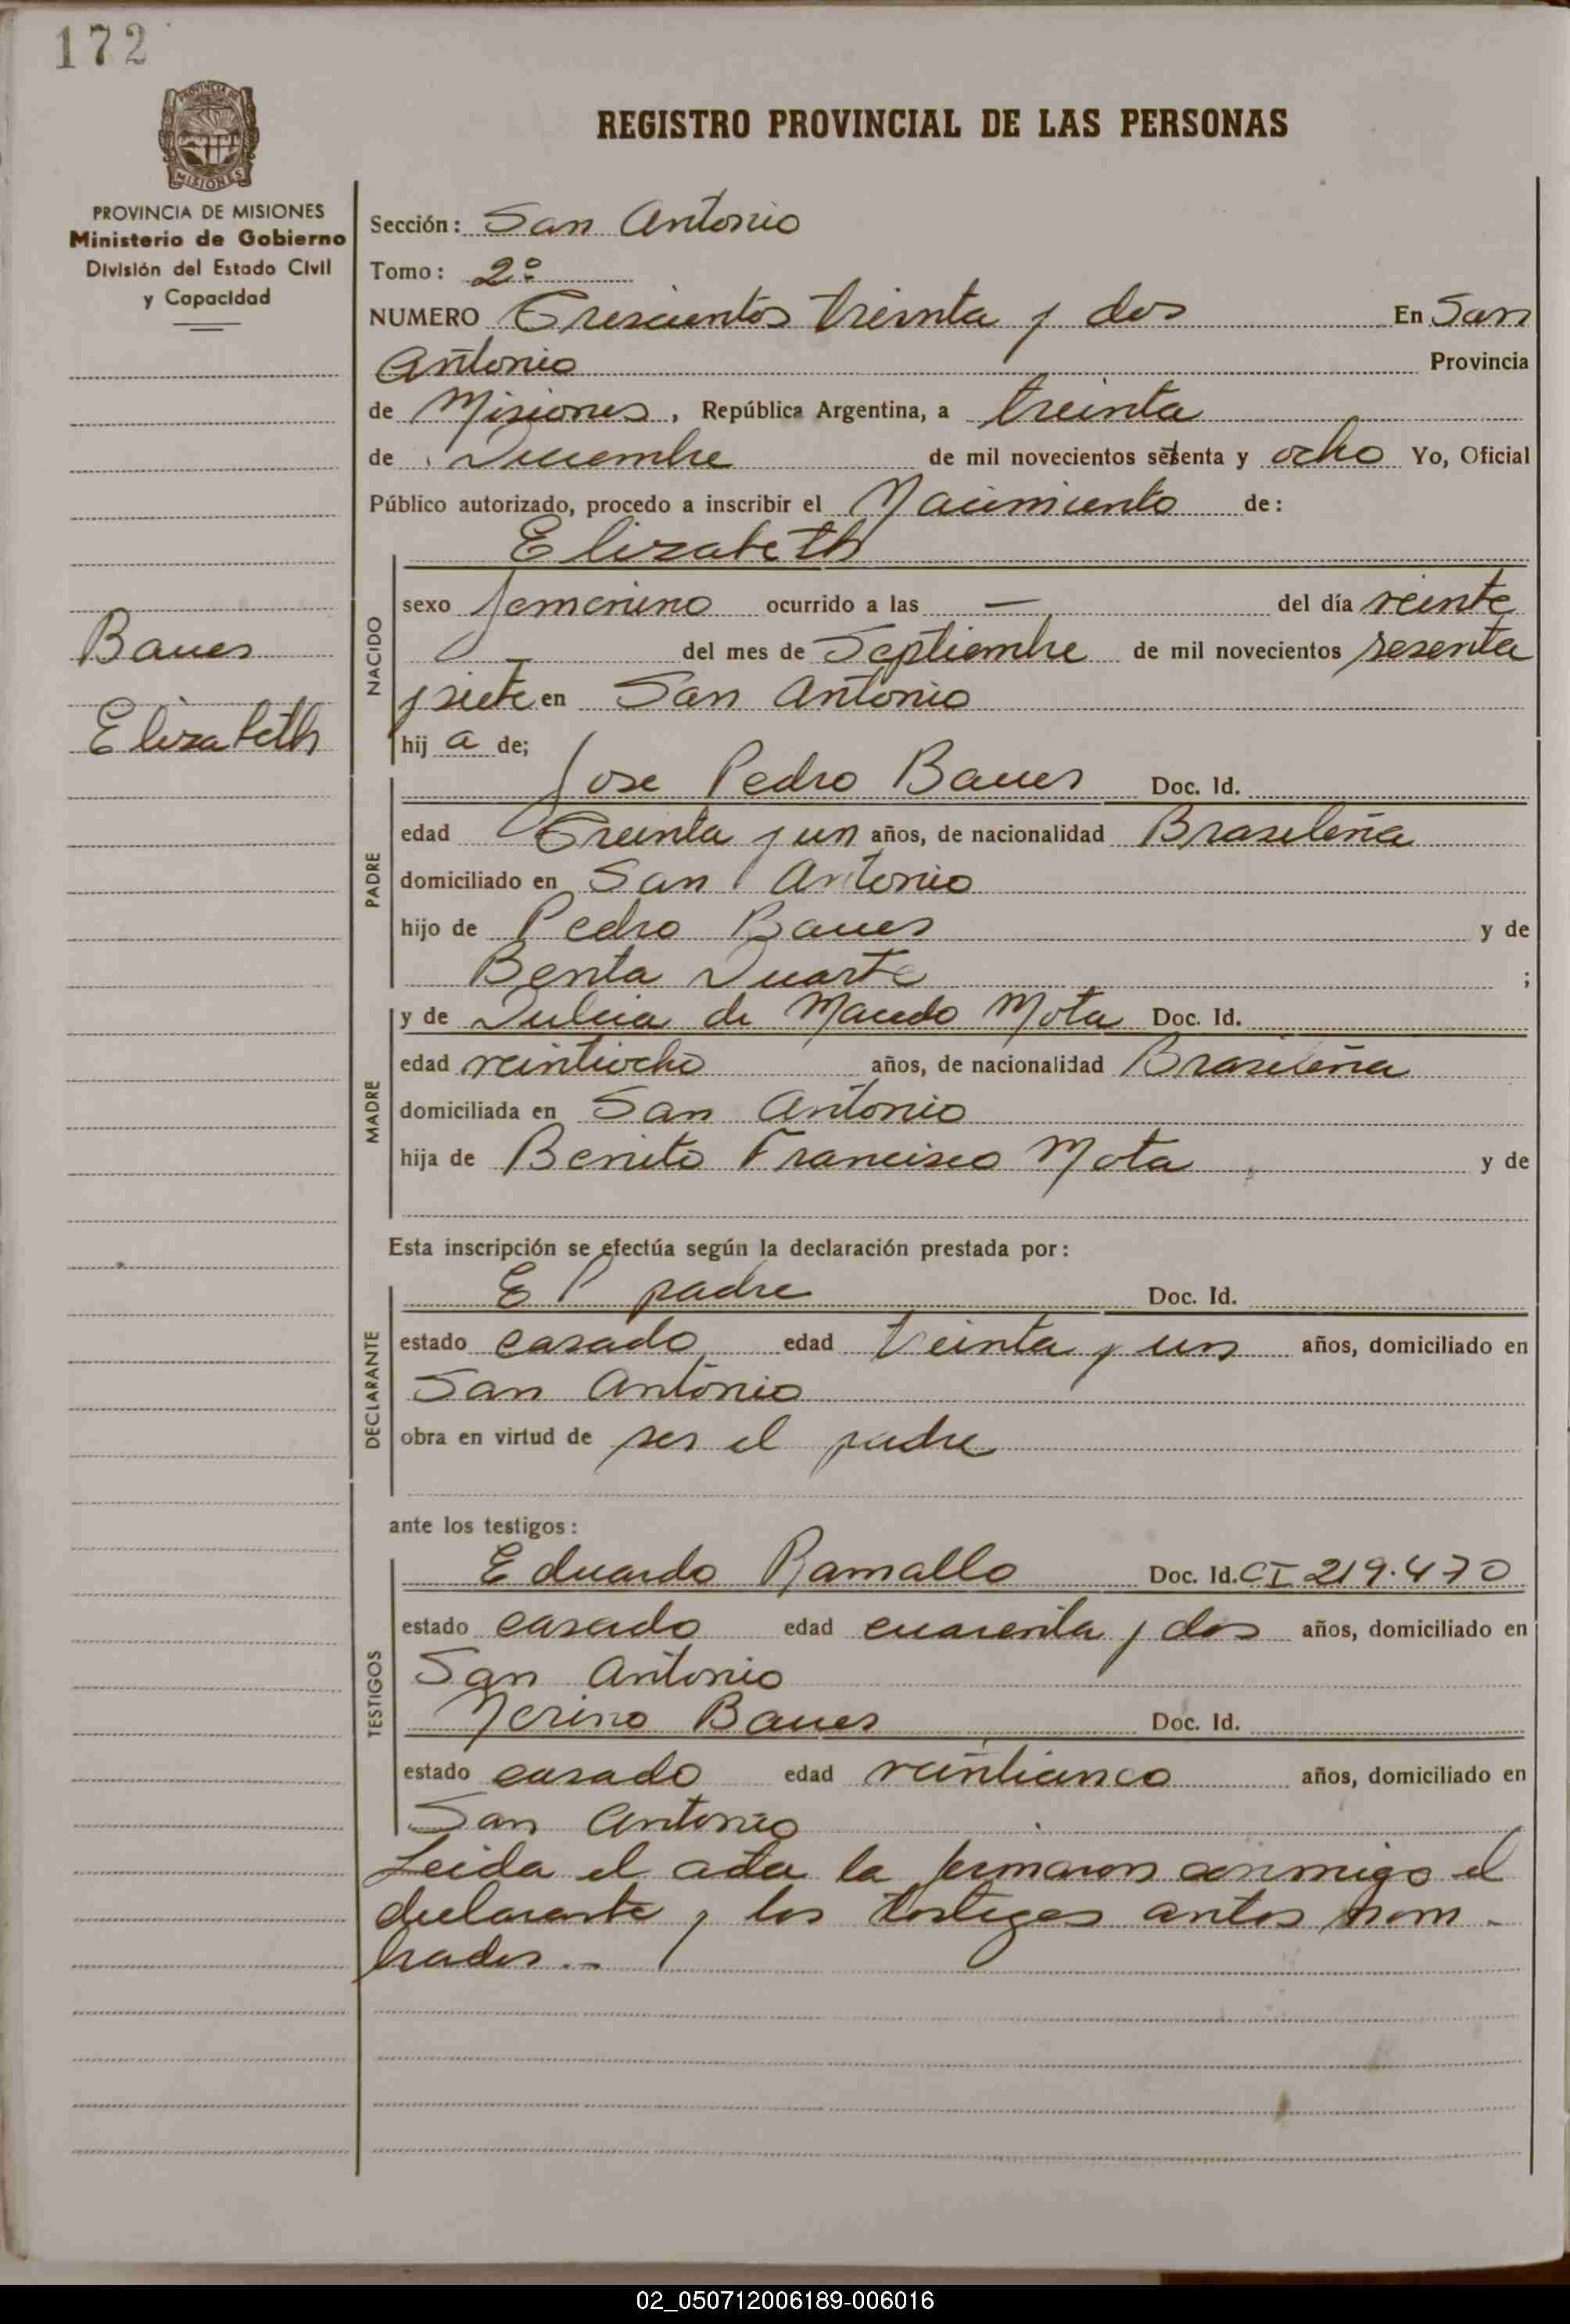 172
REGISTRO PROVINCIAL DE LAS PERSONAS
PROVINCIA DE MISIONES
MISIONES
PROVINCIA DE MISIONES
Ministerio de Gobierno
División del Estado Civil
y Capacidad
Baues
Elizabeth
Sección: San Antonio
Tomo: 2º
NUMERO Trescientos treinta y dos En San
Antonio Provincia
de Misiones, República Argentina, a treinta
de Diciembre de mil novecientos setenta y ocho Yo, Oficial
Público autorizado, procedo a inscribir el Nacimiento de:
Elizabeth
NACIDO
sexo femenino ocurrido a las — del día veinte
del mes de Septiembre de mil novecientos sesenta
y siete en San Antonio
hij a de;
PADRE
Jose Pedro Baues Doc. Id.
edad Treinta y un años, de nacionalidad Brasileña
domiciliado en San Antonio
hijo de Pedro Baues y de
Benta Duarte ;
MADRE
y de Dulcia de Macedo Mota Doc. Id.
edad veintiocho años, de nacionalidad Brasileña
domiciliada en San Antonio
hija de Benito Francisco Mota y de
Esta inscripción se efectúa según la declaración prestada por:
DECLARANTE
El padre Doc. Id.
estado casado edad treinta y un años, domiciliado en
San Antonio
obra en virtud de ser el padre
ante los testigos:
TESTIGOS
Eduardo Ramallo Doc. Id. CI 219.470
estado casado edad cuarenta y dos años, domiciliado en
San Antonio
Nerino Baues Doc. Id.
estado casado edad veinticinco años, domiciliado en
San Antonio
Leida el acta la firmaron conmigo el
declarante y los testigos antes nom-
brados.-
02_050712006189-006016